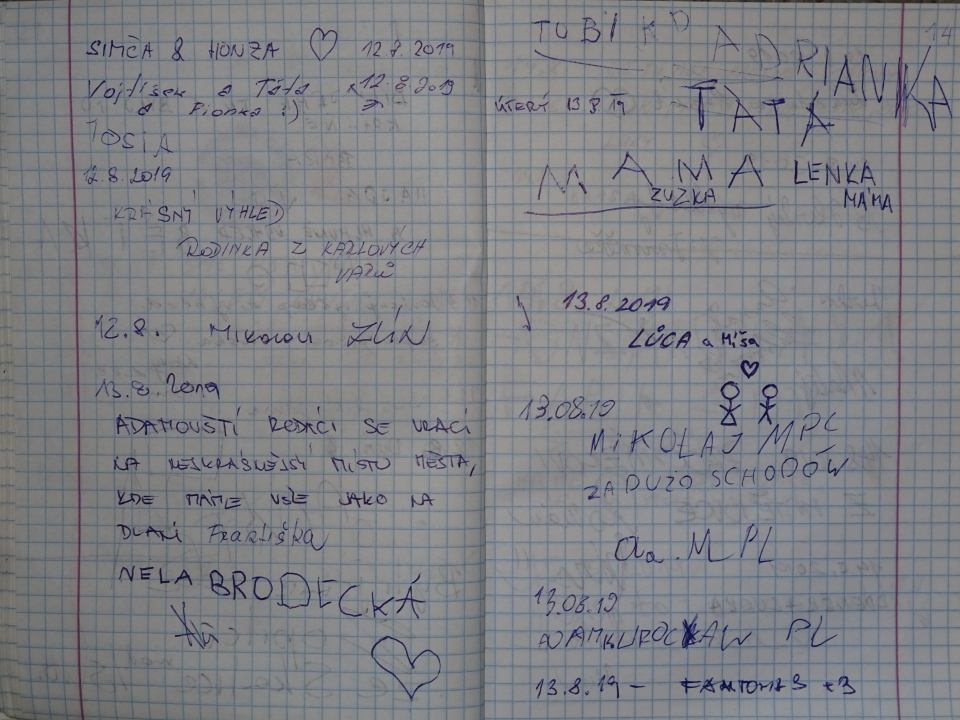 SIMČA & HONZA ♡ 12.8.2019
Vojtíšek a Táta 12.8.2019
a Fionka :)
TOSIA
12.8.2019
KRÁSNÝ VÝHLED
RODINKA Z KARLOVÝCH
VARŮ
12.8. ZÚN
13.8.2019
ADAMOVŠTÍ RODÁCI SE VRACÍ
NA NEJKRÁSNĚJŠÍ MÍSTO MĚSTA,
KDE MÁME VŠE JAKO NA
DLANI Františka
NELA BRODECKÁ
14
TOBI ADRIANKA
ÚTERÝ 13.8.19 TATA
MAMA LENKA
ZUZKA MÁMA
13.8.2019
LŮCA a Míša
13.08.19
MIKOŁAJ MPL
ZA DUŻO SCHODÓW
MPL
13.08.19
PL
13.8.19 - FANTOMAS +3